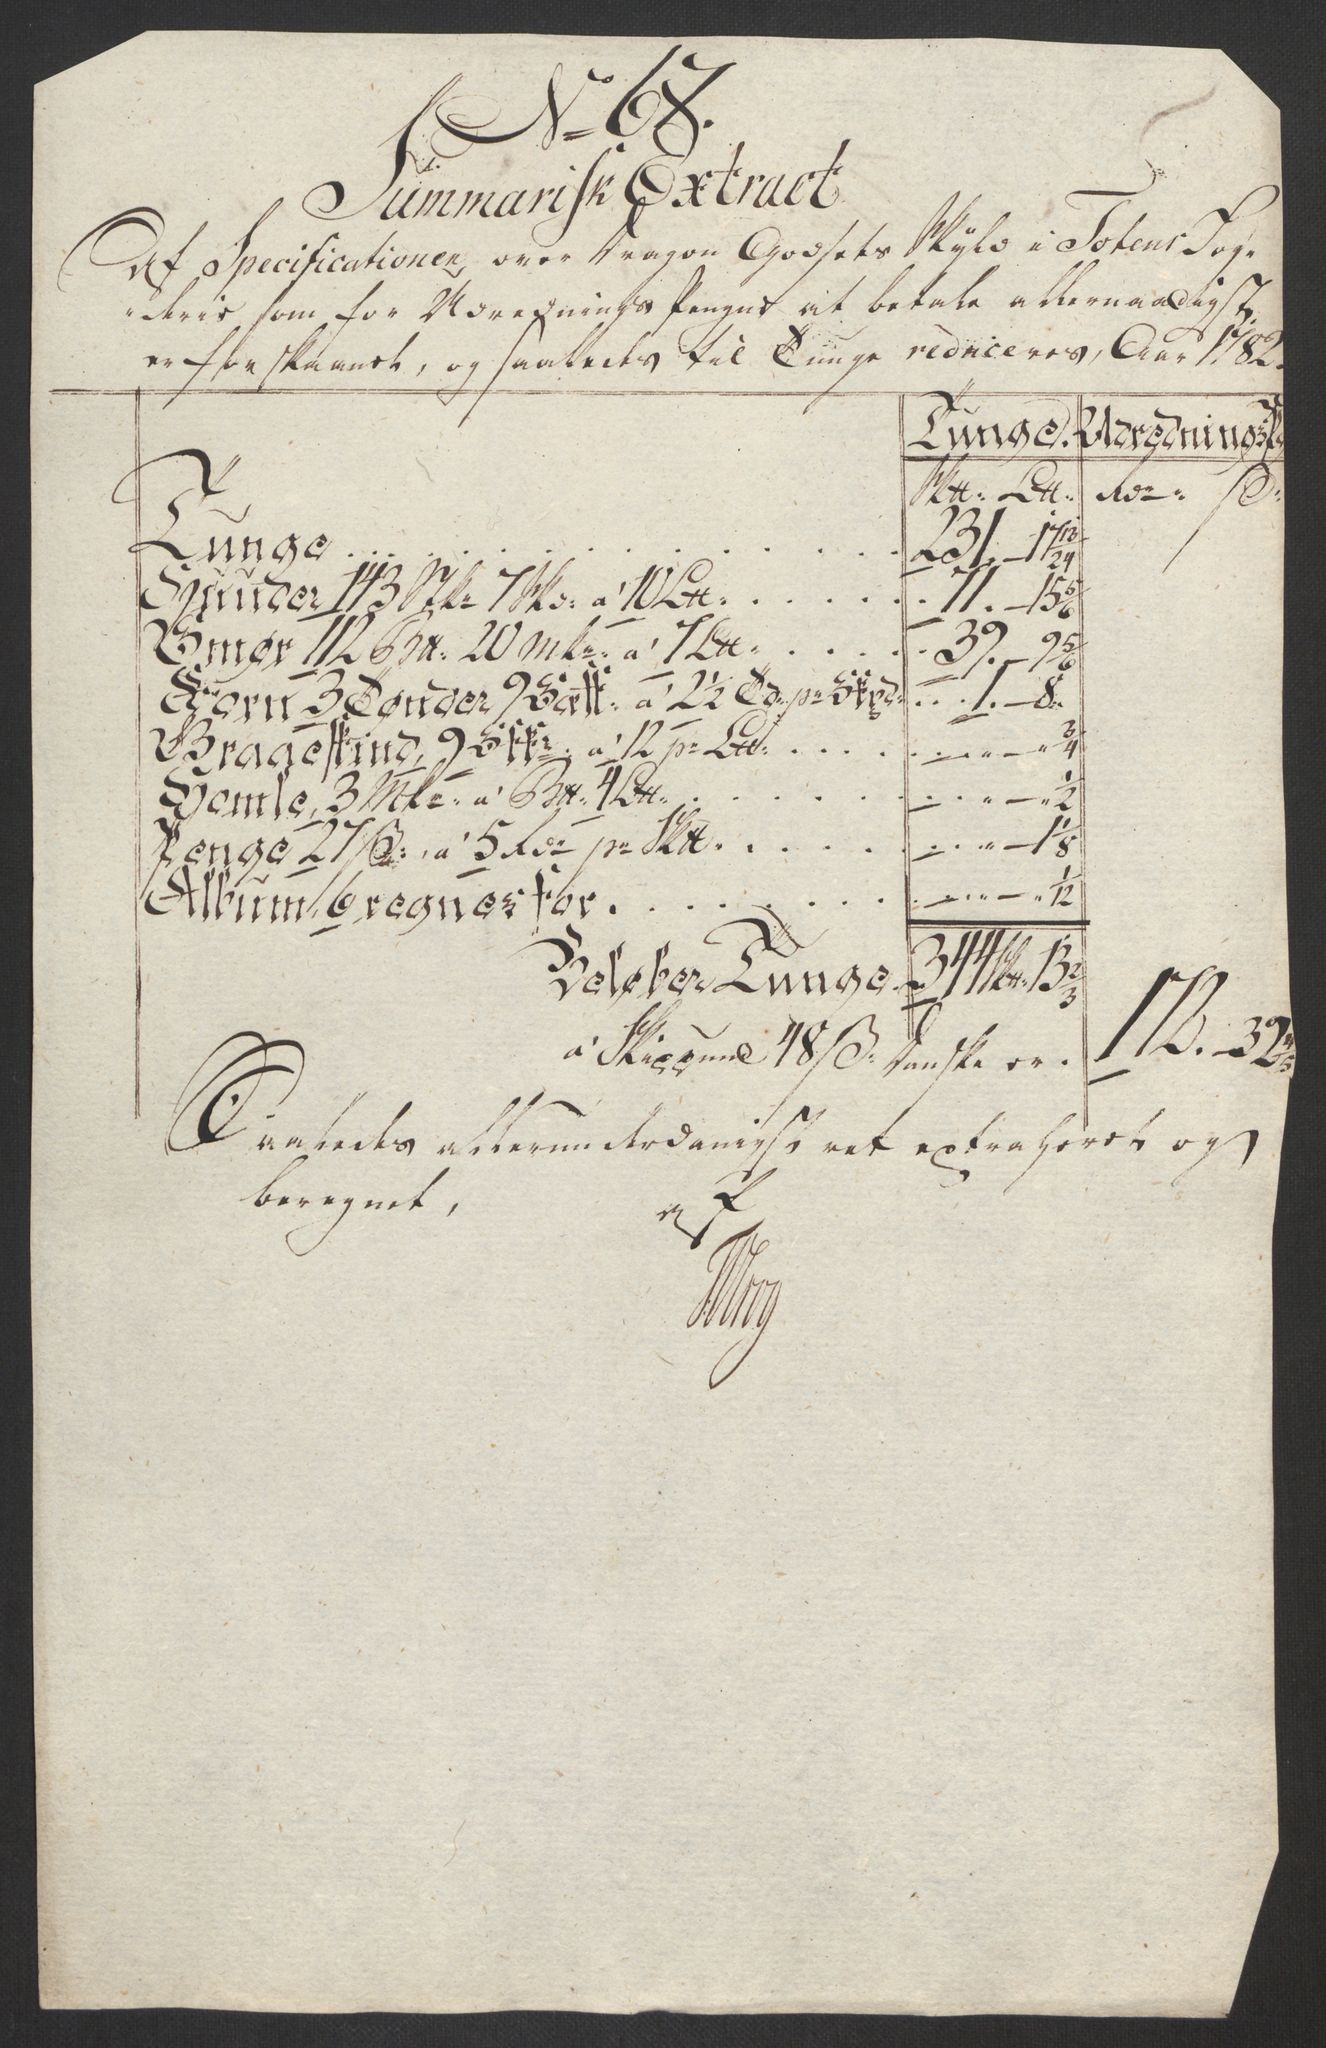 No 67.
Summarisk Extract
Af Specificationen over Dragon Godsets Skyld i Totens Foge-
derie som for Udrednings Penges at betale allernaadigst
er forskaanet, og saaledes til Tunge reduceres, Aar 1782.
Tunge. Udrednings
Sk℔: L℔: Rdr: ß:
Tunge . . . 231. 17 13/24
Huuder 143 Stkr 7 Skd: a' 10 L℔: . . . 71. 15 5/6
Smør 112 B℔: 20 mkr: a' 7 L℔: . . . 39. 9 5/6
Korn 3 Tønder 9 Sætt: a' 2½ Td pr Skpd . . . 1. 8
Brageskind, 9 Stkr: a' 12 pr L℔: . . . " 3/4
Homle, 3 Mkr: a' B℔: 4 L℔: . . . " 1/2
Penge 27 ß: a' 5 Rdr pr Sk℔: . . . " 1 1/8
Album 6 regnes for . . . " 1/12
Beløber Tunge 344 Sk℔: 13 2/3
a' Skippund 48 ß: Danske er . 172. 32
Saaledes allerunderdanigst ret extraheret og
beregnet,
af
Wiig